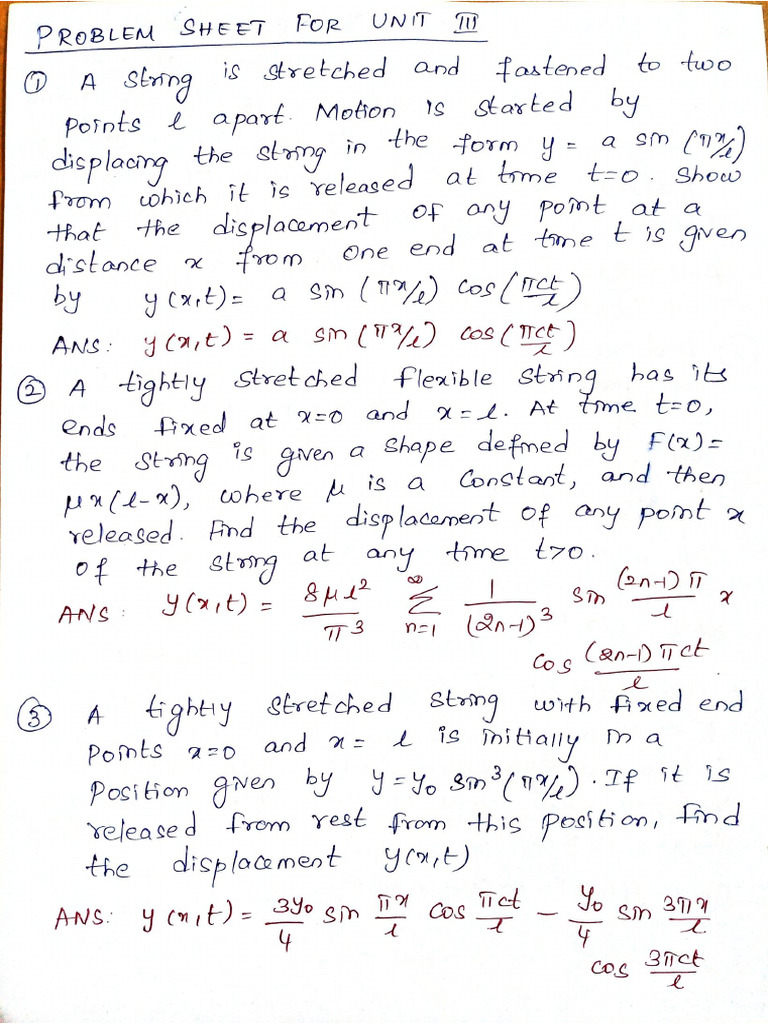 PROBLEM SHEET FOR UNIT III
① A string is stretched and fastened to two
points l apart. Motion is started by
displacing the string in the form y = a sin (πx/l)
from which it is released at time t=0. Show
that the displacement of any point at a
distance x from one end at time t is given
by y(x,t) = a sin (πx/l) cos (πct/l)
ANS: y(x,t) = a sin (πx/l) cos (πct/l)
② A tightly stretched flexible string has its
ends fixed at x=0 and x=l. At time t=0,
the string is given a shape defined by F(x)=
μx(l-x), where μ is a constant, and then
released. Find the displacement of any point x
of the string at any time t>0.
ANS: y(x,t) = 8μl²/π³ ∞Σn=1 1/(2n-1)³ sin (2n-1)π/l x
cos (2n-1)πct/l
③ A tightly stretched string with fixed end
points x=0 and x= l is initially in a
position given by y=y₀ sin³(πx/l). If it is
released from rest from this position, find
the displacement y(x,t)
ANS: y(x,t) = 3y₀/4 sin πx/l cos πct/l - y₀/4 sin 3πx/l
cos 3πct/l